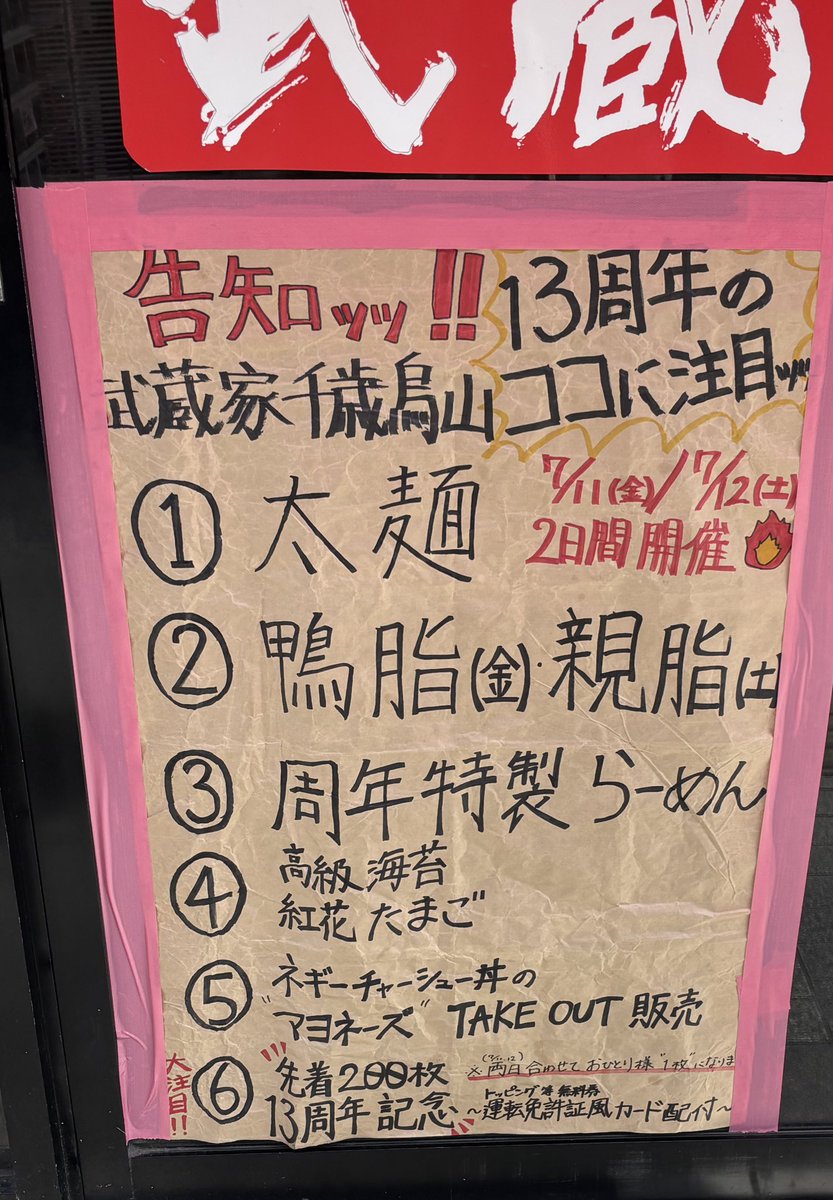 武蔵
告知ッッ!!
13周年の
ココに注目ッッ
武蔵家千歳烏山
7/11(金)/7/12(土)
2日間開催
① 太麺
② 鴨脂(金)・親脂(土)
③ 周年特製らーめん
④ 高級海苔
紅花たまご
⑤ ネギーチャーシュー丼の
"アヨネーズ" TAKE OUT 販売
大注目!!
⑥ 先着200枚
13周年記念
※両日合わせておひとり様"1枚"になりま
トッピング 無料券
~運転免許証風カード配付~